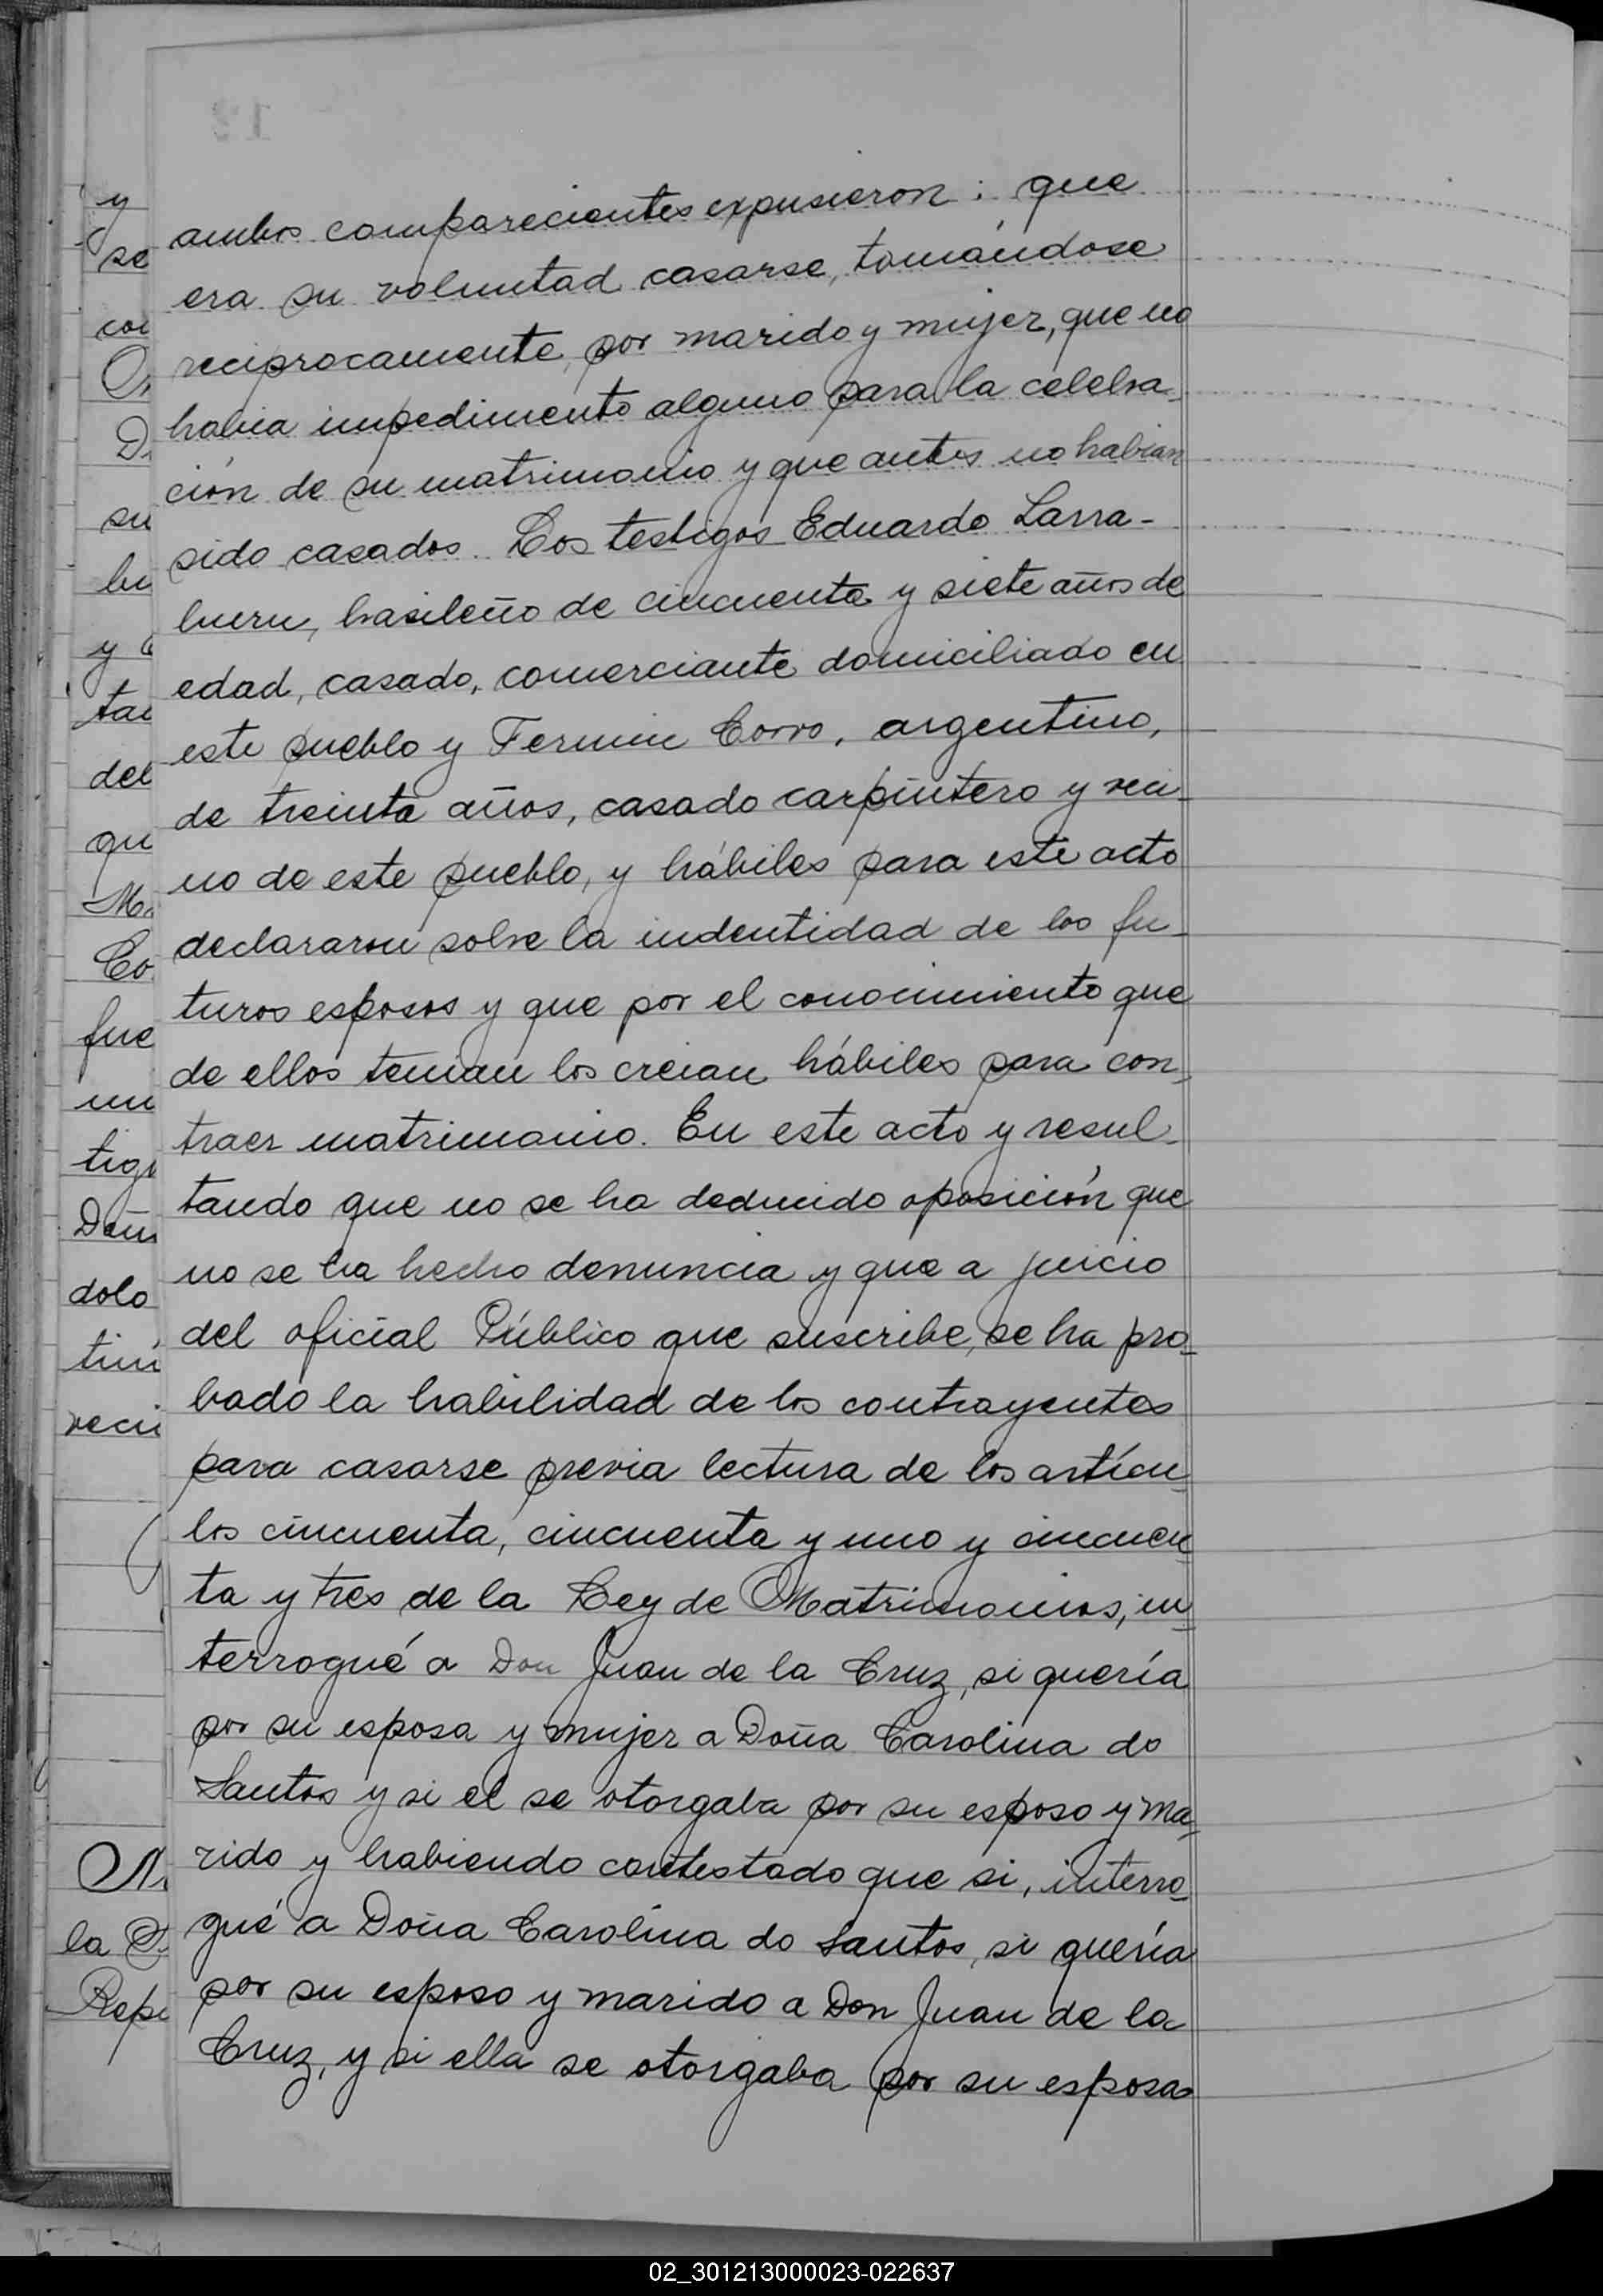 ambos comparecientes expusieron: que
era su voluntad casarse, tomándose
reciprocamente, por marido y mujer, que no
habia impedimento alguno para la celebra-
ción de su matrimonio y que antes no habian
sido casados. Los testigos Eduardo Larra-
buru, brasileño de cincuenta y siete años de
edad, casado, comerciante domiciliado en
este pueblo y Fermin Corro, argentino,
de treinta años, casado carpintero y veci-
no de este pueblo, y hábiles para este acto
declararon sobre la indentidad de los fu-
turos esposos y que por el conocimiento que
de ellos tenian los creian hábiles para con-
traer matrimonio. En este acto y resul-
tando que no se ha deducido oposición que
no se ha hecho denuncia y que a juicio
del oficial Público que suscribe, se ha pro-
bado la habilidad de los contrayentes
para casarse previa lectura de los artícu-
los cincuenta, cincuenta y uno y cincuen-
ta y tres de la Ley de Matrimonios, in-
terrogué a Don Juan de la Cruz, si quería
por su esposa y mujer a Doña Carolina do
Santos y si el se otorgaba por su esposo y ma-
rido y habiendo contestado que si, interro-
gué a Doña Carolina do Santos, si quería
por su esposo y marido a Don Juan de la
Cruz, y si ella se otorgaba por su esposa
y
se
su
y
del
qu
fue
dolo
la
02_301213000023-022637